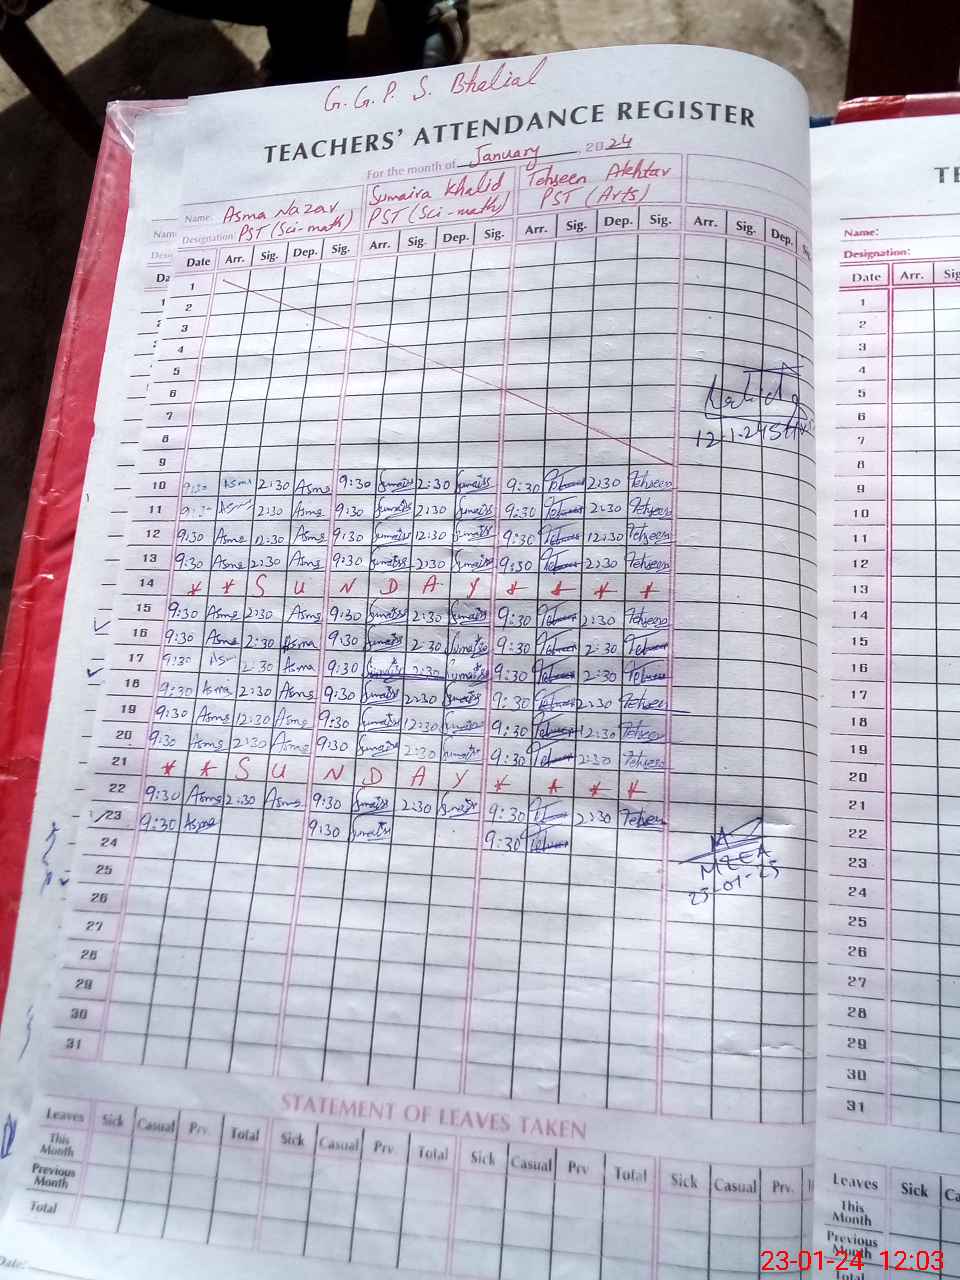 G. G. P. S. Bhalial
TEACHERS' ATTENDANCE REGISTER
For the month of January, 2024
Name: Asma Nazar Sumaira Khalid Tehseen Akhtar
Designation: PST (Sci-math) PST (Sci-math) PST (Arts)
Date Arr. Sig. Dep. Sig. Arr. Sig. Dep. Sig. Arr. Sig. Dep. Sig. Arr. Sig. Dep.
1
2
3
4
5
6
7
8
9
10 9:30 Asma 2:30 Asma 9:30 Sumaira 2:30 Sumaira 9:30 2:30 Tehseen
11 9:30 Asma 2:30 Asma 9:30 Sumaira 2:30 Sumaira 9:30 2:30 Tehseen
12 9:30 Asma 12:30 Asma 9:30 Sumaira 12:30 Sumaira 9:30 12:30 Tehseen
13 9:30 Asma 2:30 Asma 9:30 Sumaira 2:30 Sumaira 9:30 2:30 Tehseen
14 * * S U N D A Y * * * *
15 9:30 Asma 2:30 Asma 9:30 Sumaira 2:30 Sumaira 9:30 2:30 Tehseen
16 9:30 Asma 2:30 Asma 9:30 Sumaira 2:30 Sumaira 9:30 2:30
17 9:30 Asma 2:30 Asma 9:30 Sumaira 2:30 Sumaira 9:30 2:30
18 9:30 Asma 2:30 Asma 9:30 Sumaira 2:30 Sumaira 9:30 2:30 Tehseen
19 9:30 Asma 12:30 Asma 9:30 Sumaira 12:30 Sumaira 9:30 12:30 Tehseen
20 9:30 Asma 2:30 Asma 9:30 Sumaira 2:30 Sumaira 9:30 2:30 Tehseen
21 * * S U N D A Y * * * *
22 9:30 Asma 2:30 Asma 9:30 Sumaira 2:30 Sumaira 9:30 2:30 Tehseen
23 9:30 Asma 9:30 Sumaira 9:30
24
25
26
27
28
29
30
31
12-1-24
MEEA
STATEMENT OF LEAVES TAKEN
Leaves Sick Casual Prv. Total Sick Casual Prv Total Sick Casual Prv Total Sick Casual Prv.
This Month
Previous Month
Total
Date:
Name:
Designation:
Date Arr.
1
2
3
4
5
6
7
8
9
10
11
12
13
14
15
16
17
18
19
20
21
22
23
24
25
26
27
28
29
30
31
Leaves Sick
This Month
Previous Month
Total
23-01-24 12:03